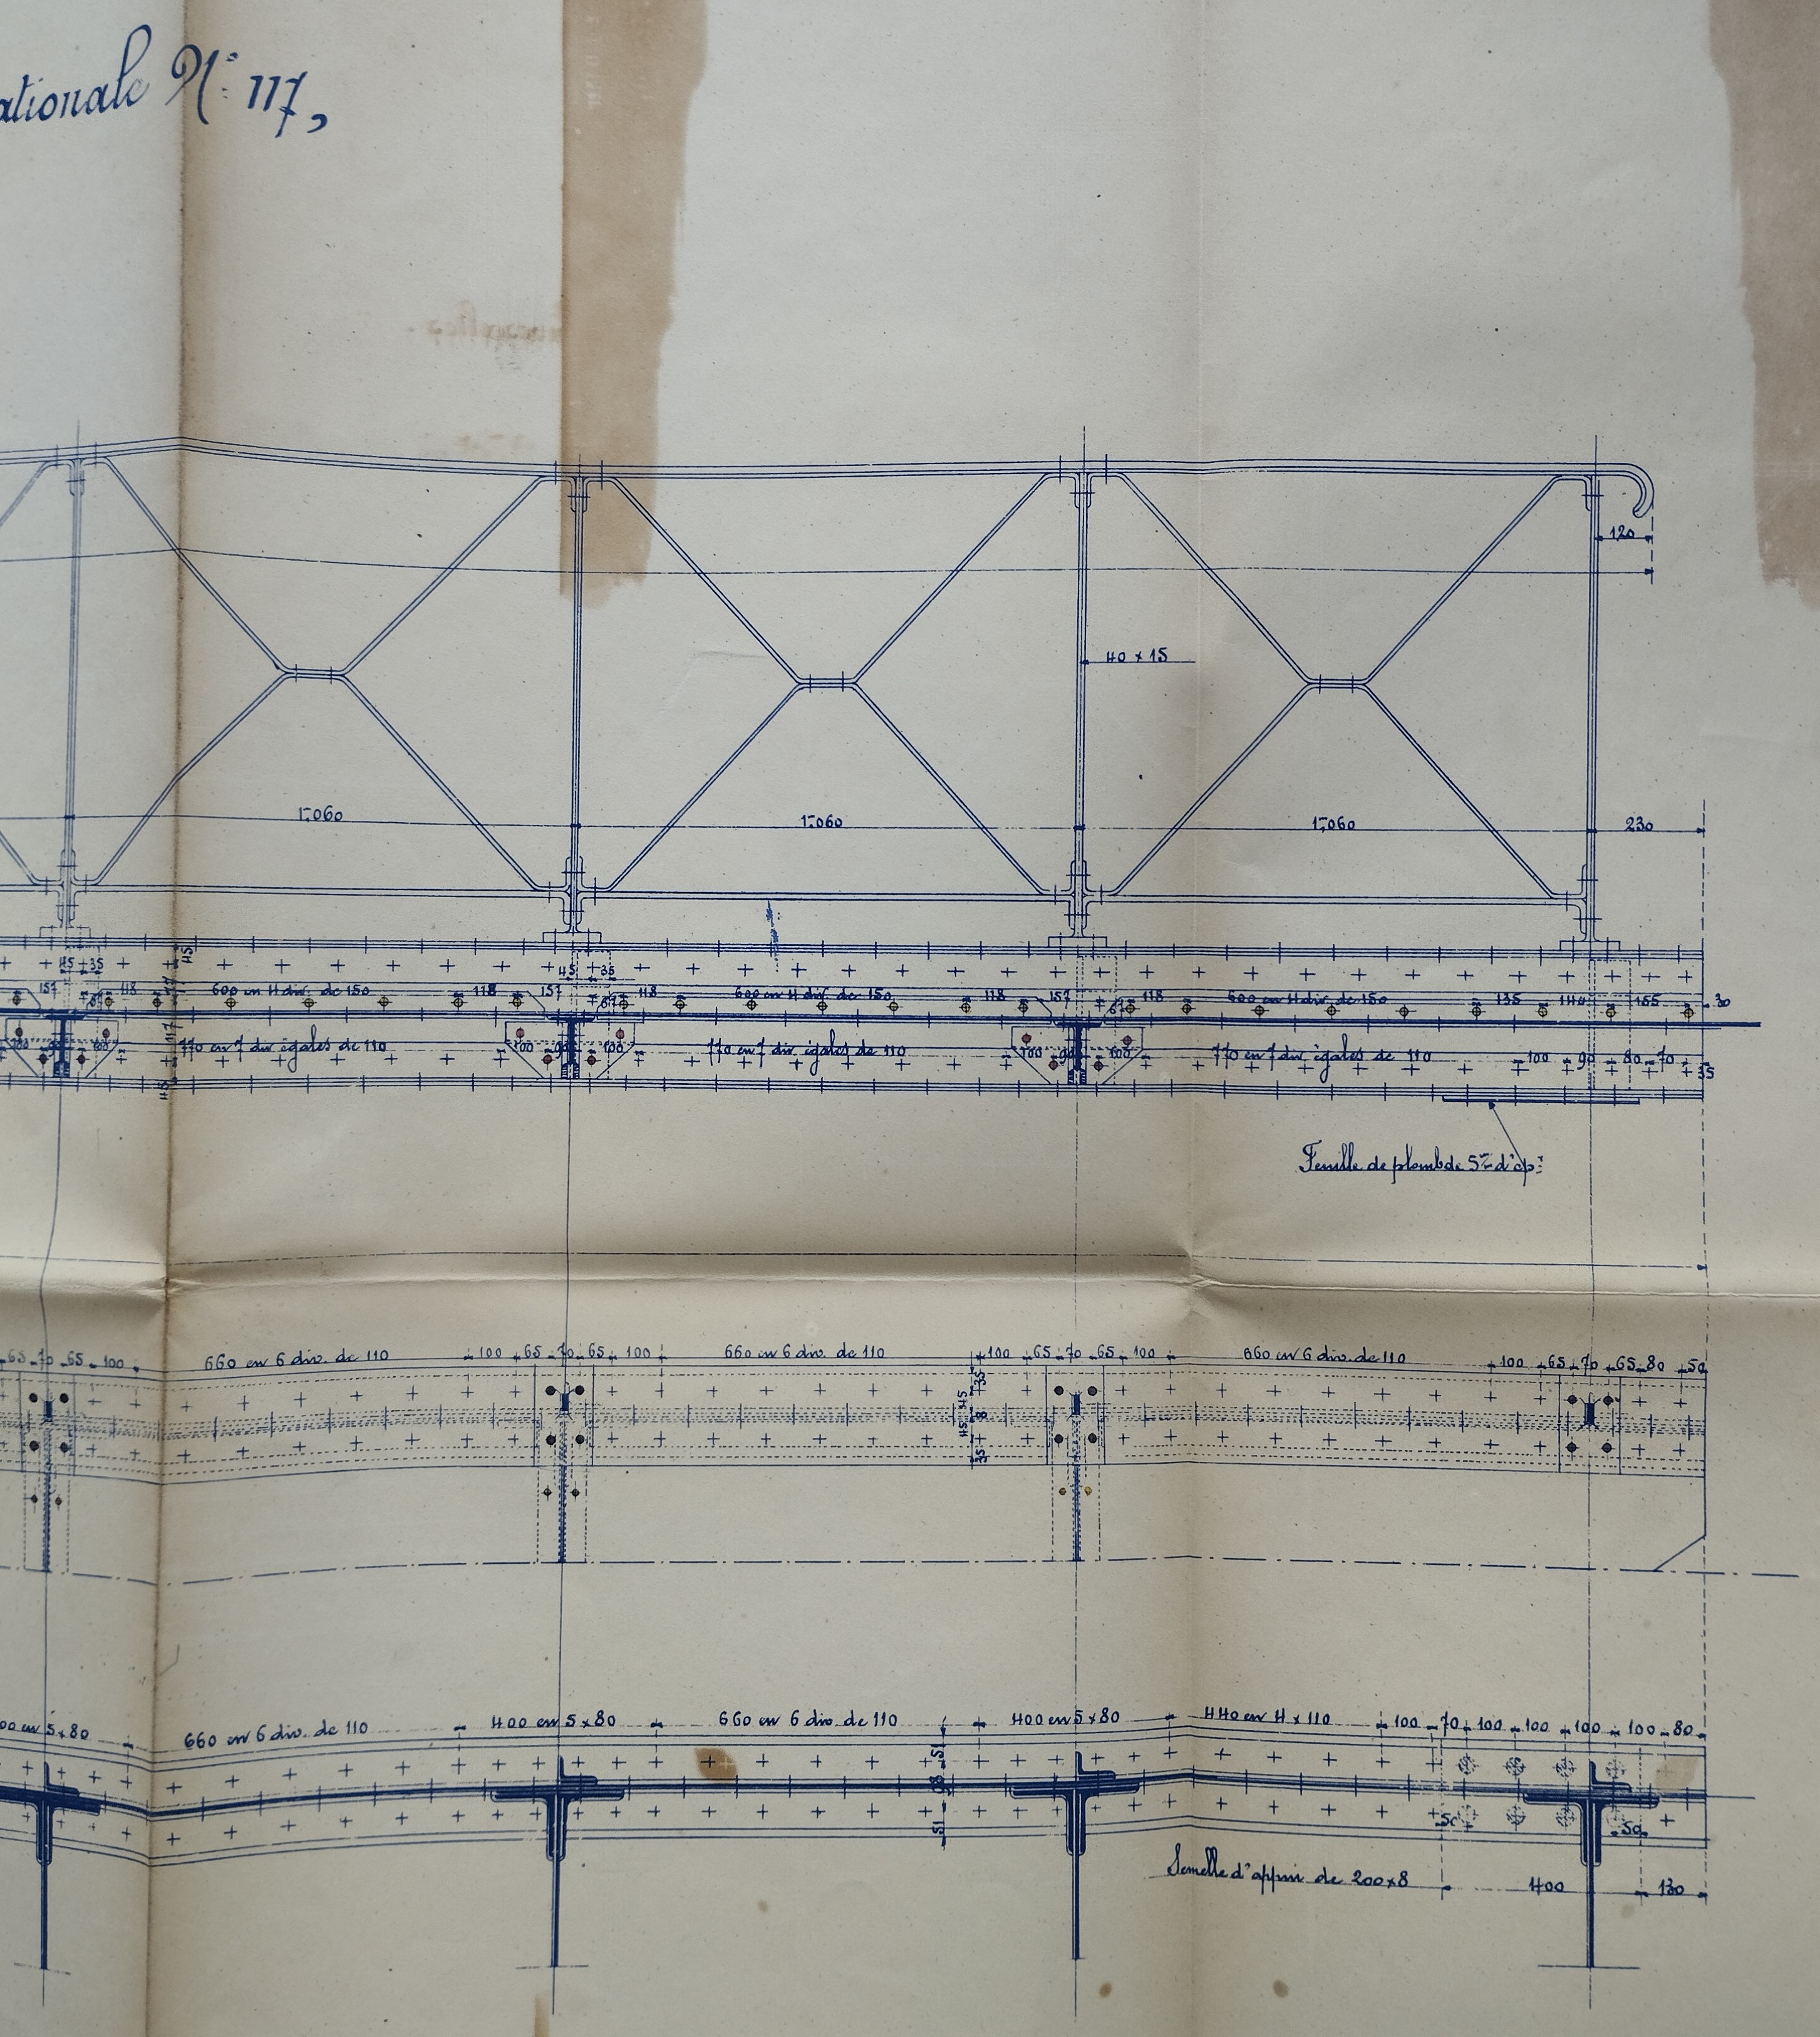 ationale N° 117,
120
40 × 15
1,060 1,060 1,060 230
45 35 45 45 35
157 118 600 en 4 div. de 150 118 157 118 600 en 4 div. de 150 118 157 118 600 en 4 div. de 150 135 140 155 30
100 90 100 770 en 7 div. égales de 110 100 90 100 770 en 7 div. égales de 110 100 90 100 770 en 7 div. égales de 110 100 90 80 70 35
45
Feuille de plomb de 5mm d'épr
65 70 65 100 660 en 6 div. de 110 100 65 70 65 100 660 en 6 div. de 110 100 65 70 65 100 660 en 6 div. de 110 100 65 70 65 80 50
35 45 8 45 35
00 en 5 × 80 660 en 6 div. de 110 400 en 5 × 80 660 en 6 div. de 110 400 en 5 × 80 440 en 4 × 110 100 70 100 100 100 100 80
51 98 51
50 50
Semelle d'appui de 200 × 8 400 130